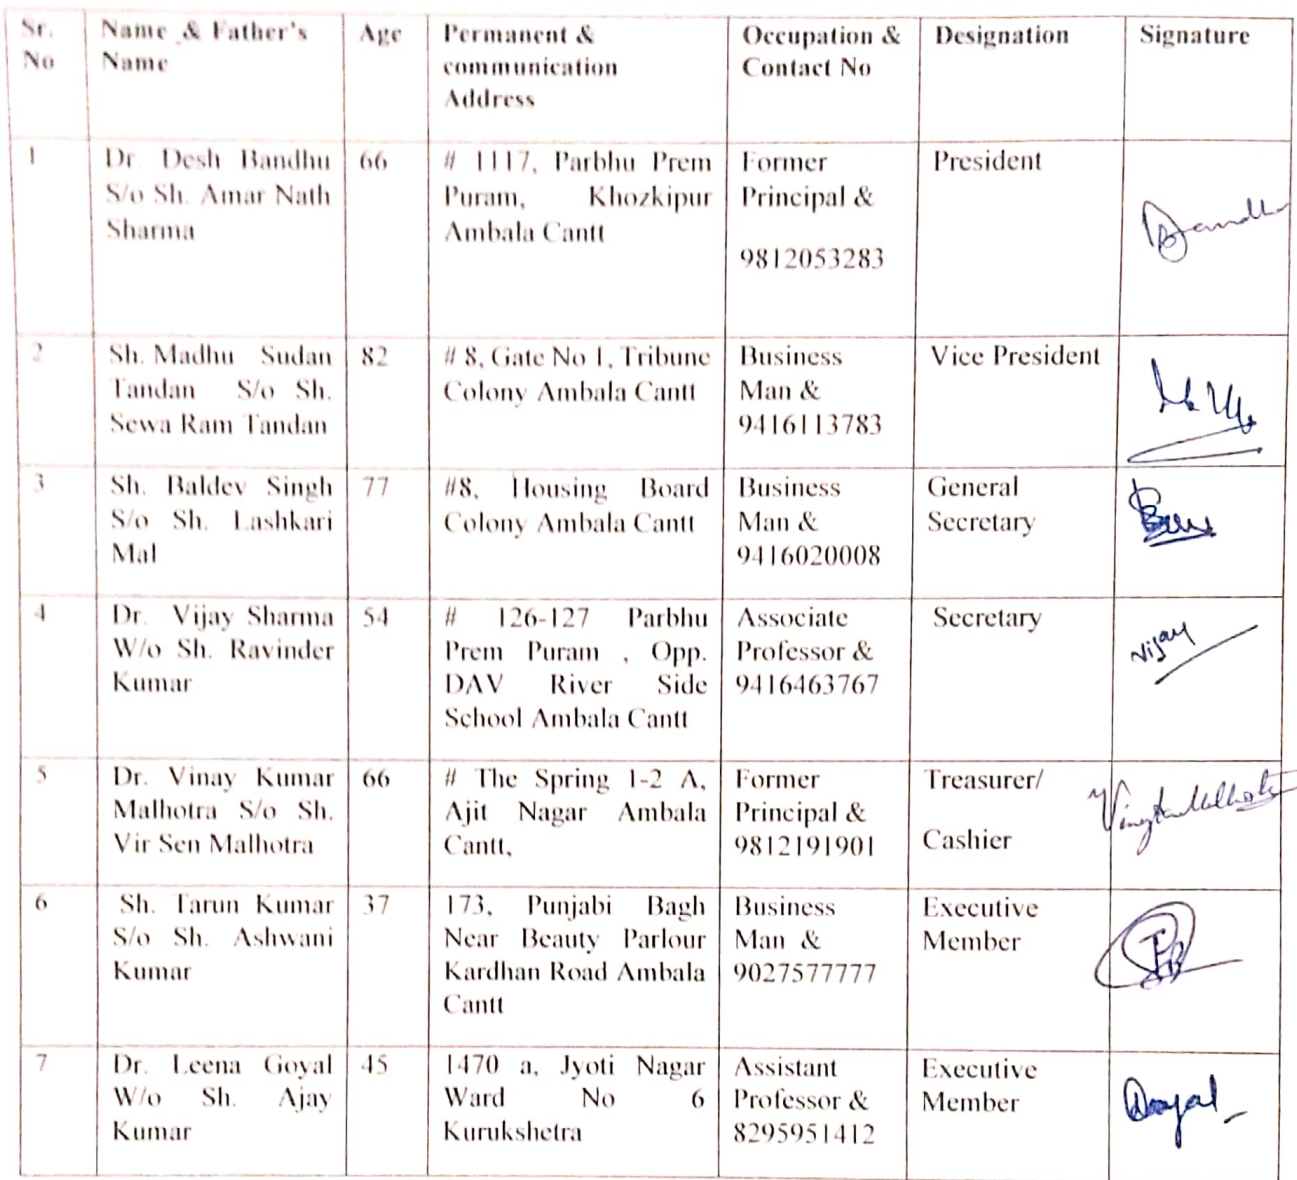 Sr. No | Name & Father's Name | Age | Permanent & communication Address | Occupation & Contact No | Designation | Signature
1 | Dr. Desh Bandhu S/o Sh. Amar Nath Sharma | 66 | # 1117, Parbhu Prem Puram, Khozkipur Ambala Cantt | Former Principal & 9812053283 | President |
2 | Sh. Madhu Sudan Tandan S/o Sh. Sewa Ram Tandan | 82 | # 8, Gate No 1, Tribune Colony Ambala Cantt | Business Man & 9416113783 | Vice President |
3 | Sh. Baldev Singh S/o Sh. Lashkari Mal | 77 | #8, Housing Board Colony Ambala Cantt | Business Man & 9416020008 | General Secretary |
4 | Dr. Vijay Sharma W/o Sh. Ravinder Kumar | 54 | # 126-127 Parbhu Prem Puram , Opp. DAV River Side School Ambala Cantt | Associate Professor & 9416463767 | Secretary | Vijay
5 | Dr. Vinay Kumar Malhotra S/o Sh. Vir Sen Malhotra | 66 | # The Spring 1-2 A, Ajit Nagar Ambala Cantt, | Former Principal & 9812191901 | Treasurer/ Cashier |
6 | Sh. Tarun Kumar S/o Sh. Ashwani Kumar | 37 | 173, Punjabi Bagh Near Beauty Parlour Kardhan Road Ambala Cantt | Business Man & 9027577777 | Executive Member |
7 | Dr. Leena Goyal W/o Sh. Ajay Kumar | 45 | 1470 a, Jyoti Nagar Ward No 6 Kurukshetra | Assistant Professor & 8295951412 | Executive Member |